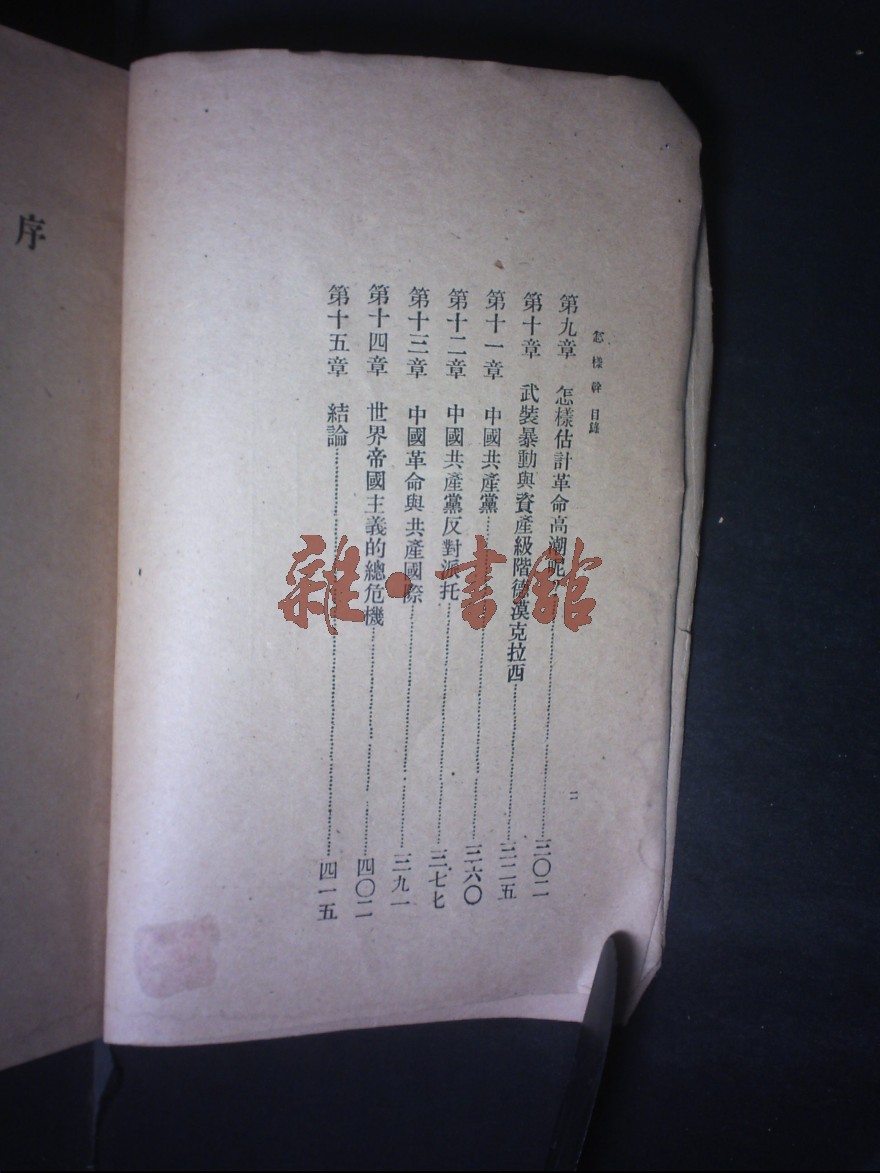 怎樣幹 目錄
第九章 怎樣估計革命高潮呢……三〇二
第十章 武裝暴動與資產級階德漠克拉西……三二五
第十一章 中國共產黨……三六〇
第十二章 中國共產黨反對派托……三七七
第十三章 中國革命與共產國際……三九一
第十四章 世界帝國主義的總危機……四〇二
第十五章 結論……四一五
二
序
雜·書館